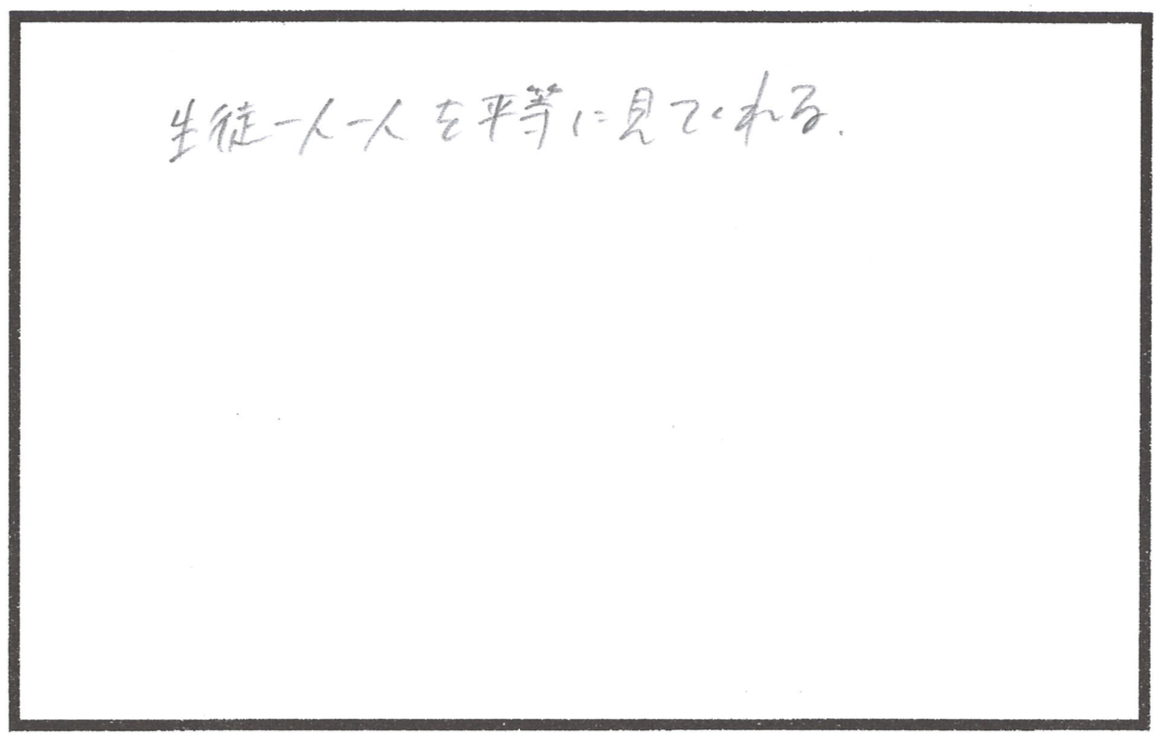 生徒一人一人を平等に見てくれる.